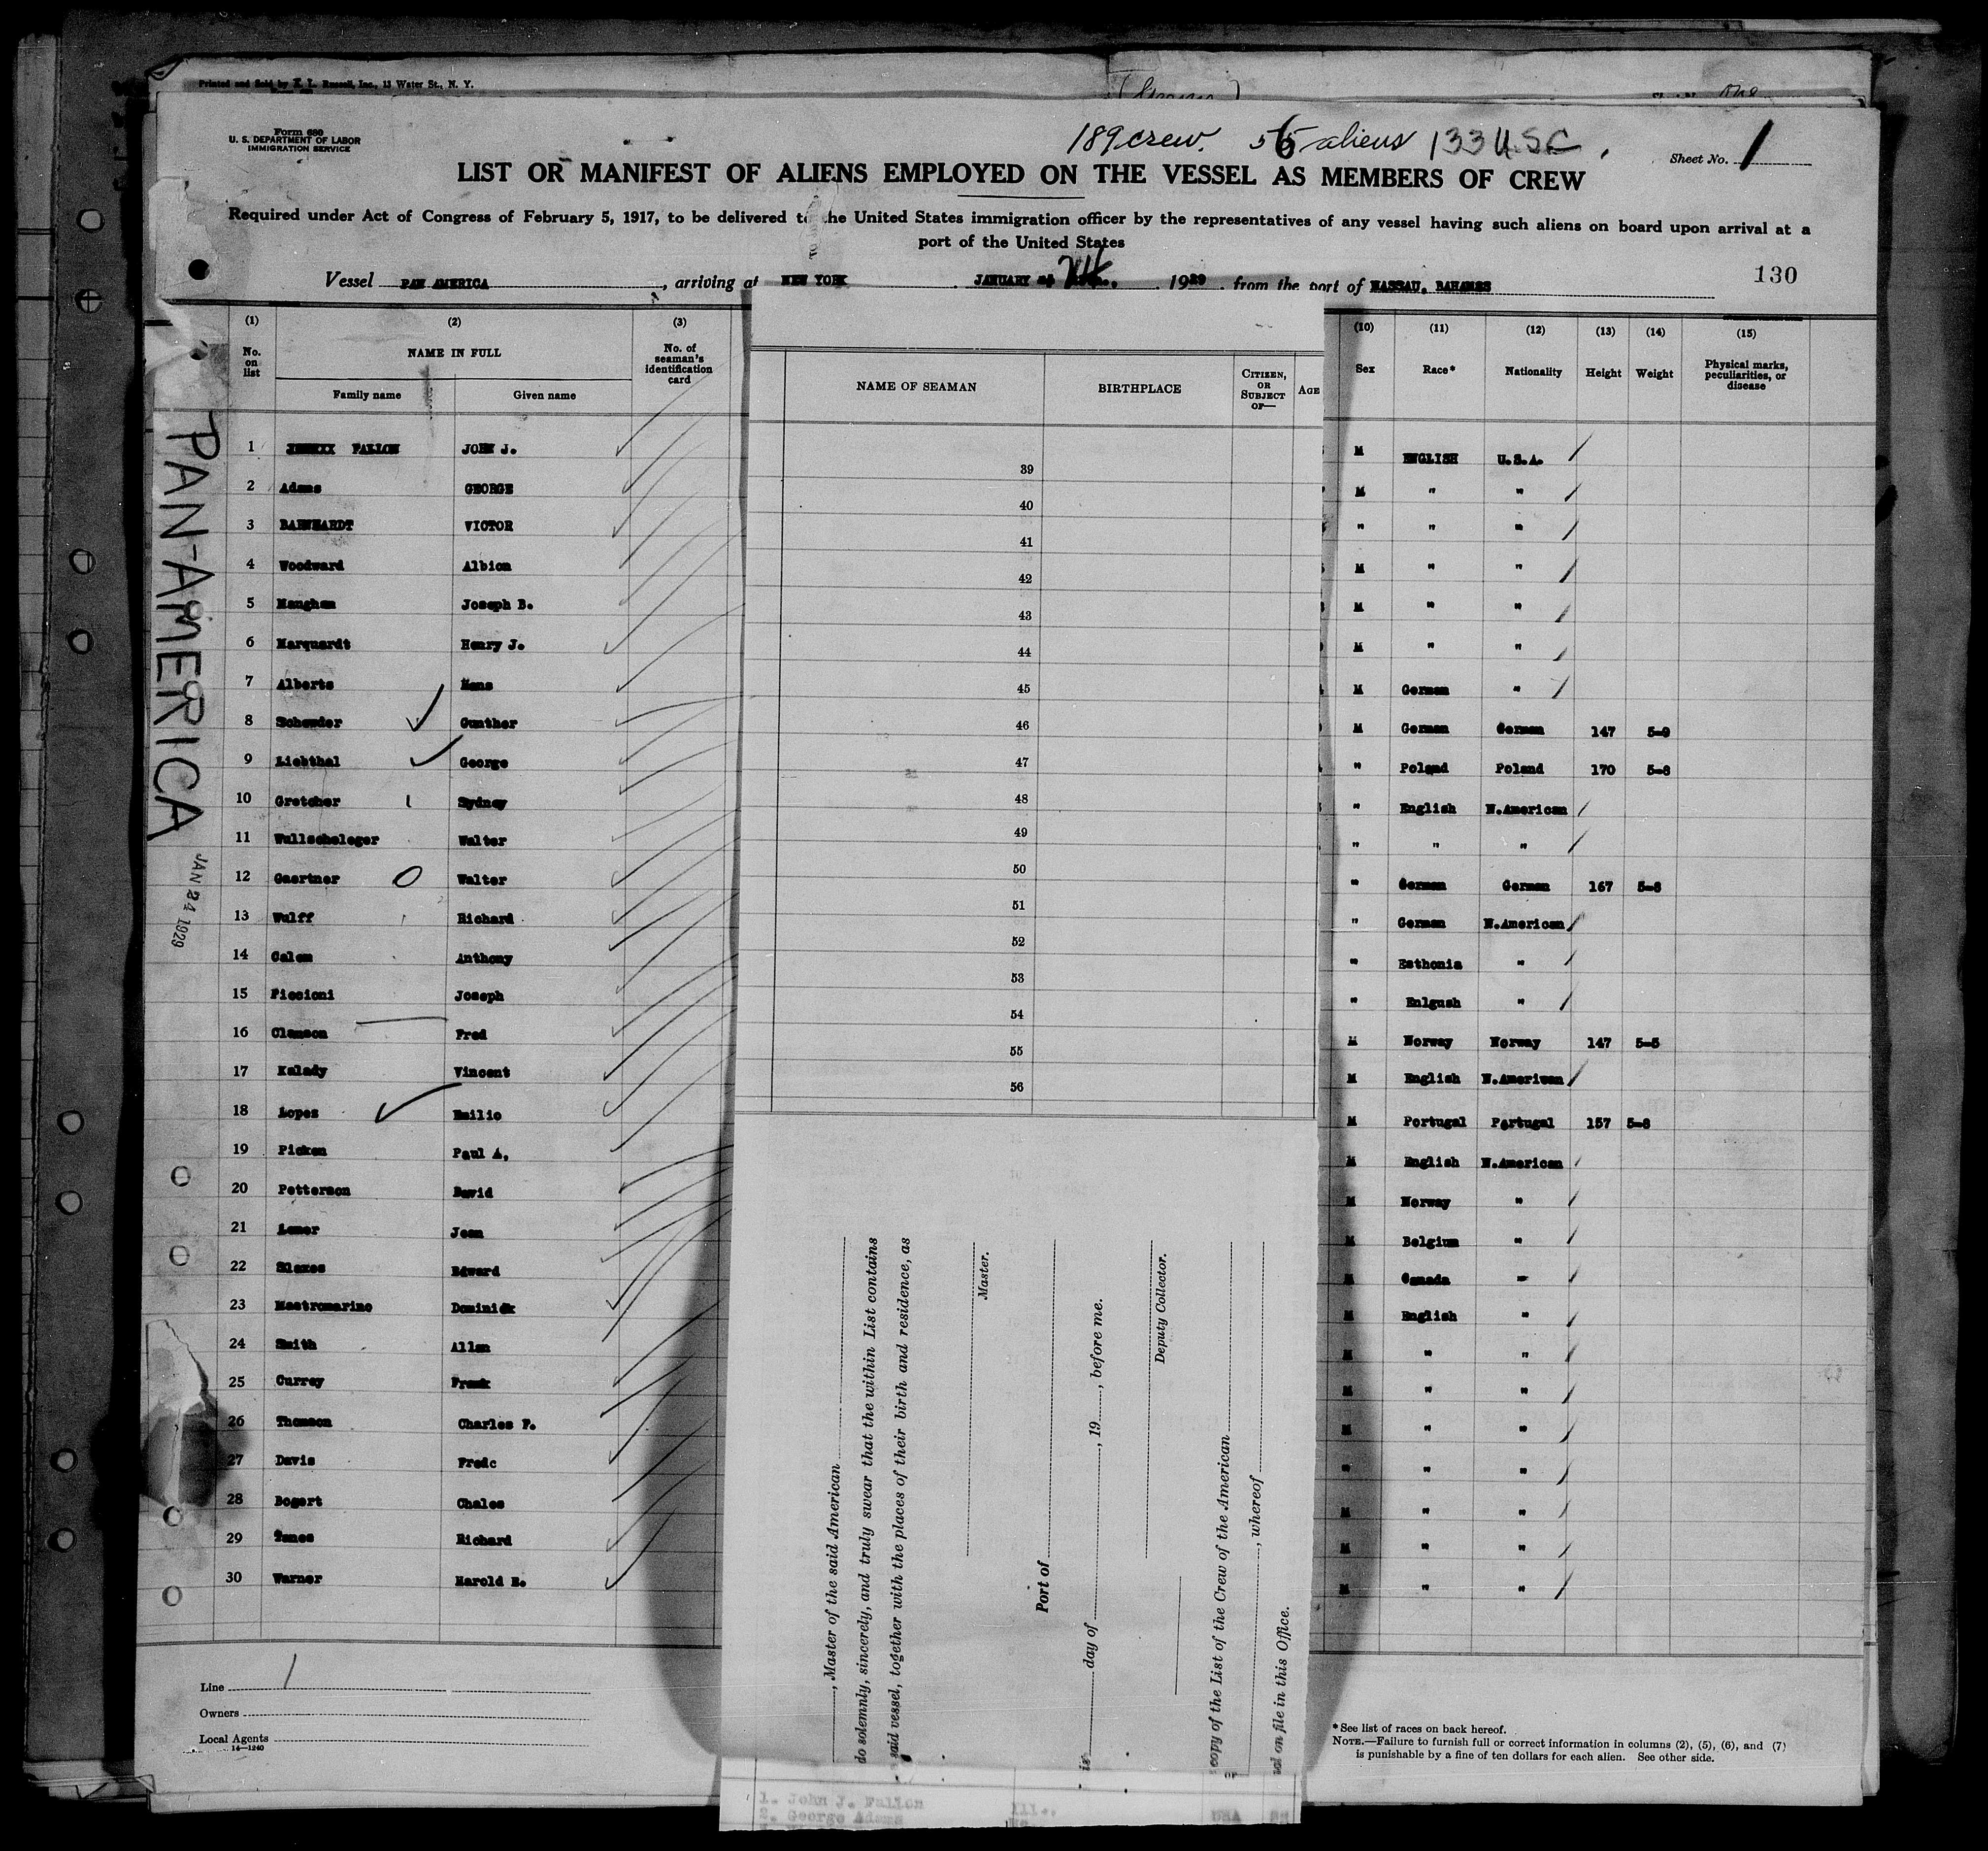 Printed and Sold by E. L. Russell, Inc., 13 Water St., N. Y.
Form 680
U. S. DEPARTMENT OF LABOR
IMMIGRATION SERVICE
189 crew. 56 aliens 133 U.S.C.
Sheet No. 1
LIST OR MANIFEST OF ALIENS EMPLOYED ON THE VESSEL AS MEMBERS OF CREW
Required under Act of Congress of February 5, 1917, to be delivered to the United States immigration officer by the representatives of any vessel having such aliens on board upon arrival at a
port of the United States
Vessel PAN AMERICA, arriving at NEW YORK, JANUARY 24, 1929, from the port of NASSAU, BAHAMAS
130
PAN-AMERICA
JAN 24 1929
(1) (2) (3) (10) (11) (12) (13) (14) (15)
No. on list NAME IN FULL No. of seaman's identification card Sex Race* Nationality Height Weight Physical marks, peculiarities, or disease
Family name Given name
1 FALLON JOHN J. M ENGLISH U.S.A.
2 Adams GEORGE M " "
3 BARNHARDT VICTOR " " "
4 Woodward Albion M " "
5 Maughan Joseph B. M " "
6 Marquardt Henry J. M " "
7 Alberts Hans M German "
8 Schowder Gunther M German German 147 5-9
9 Liebthal George " Poland Poland 170 5-8
10 Gretcher Sydney " English N.American
11 Wullscheleger Walter " " "
12 Gaertner Walter " German German 167 5-8
13 Wulff Richard " German N.American
14 Calem Anthony " Esthonia "
15 Piccioni Joseph " Enlgush "
16 Clemson Fred M Norway Norway 147 5-5
17 Kalady Vincent M English N.American
18 Lopes Emilio M Portugal Portugal 157 5-8
19 Picken Paul A. M English N.American
20 Petterson David M Norway "
21 Lemer Jean M Belgium "
22 Slaxes Edward M Canada "
23 Mastromarino Dominick M English "
24 Smith Allen M " "
25 Currey Frank M " "
26 Thomson Charles F. M " "
27 Davis Fredc " " "
28 Bogert Chales M " "
29 Tanes Richard M " "
30 Warner Harold E. M " "
NAME OF SEAMAN BIRTHPLACE CITIZEN, OR SUBJECT OF— AGE
39
40
41
42
43
44
45
46
47
48
49
50
51
52
53
54
55
56
, Master of the said American
do solemnly, sincerely, and truly swear that the within List contains
said vessel, together with the places of their birth and residence, as
Master.
Port of
day of , 19 , before me.
Deputy Collector.
copy of the List of the Crew of the American
, whereof
on file in this Office.
or
1. John J. Fallon Ill. USA
2. George Adams
Line 1
Owners
Local Agents
14—1240
*See list of races on back hereof.
NOTE.—Failure to furnish full or correct information in columns (2), (5), (6), and (7)
is punishable by a fine of ten dollars for each alien. See other side.